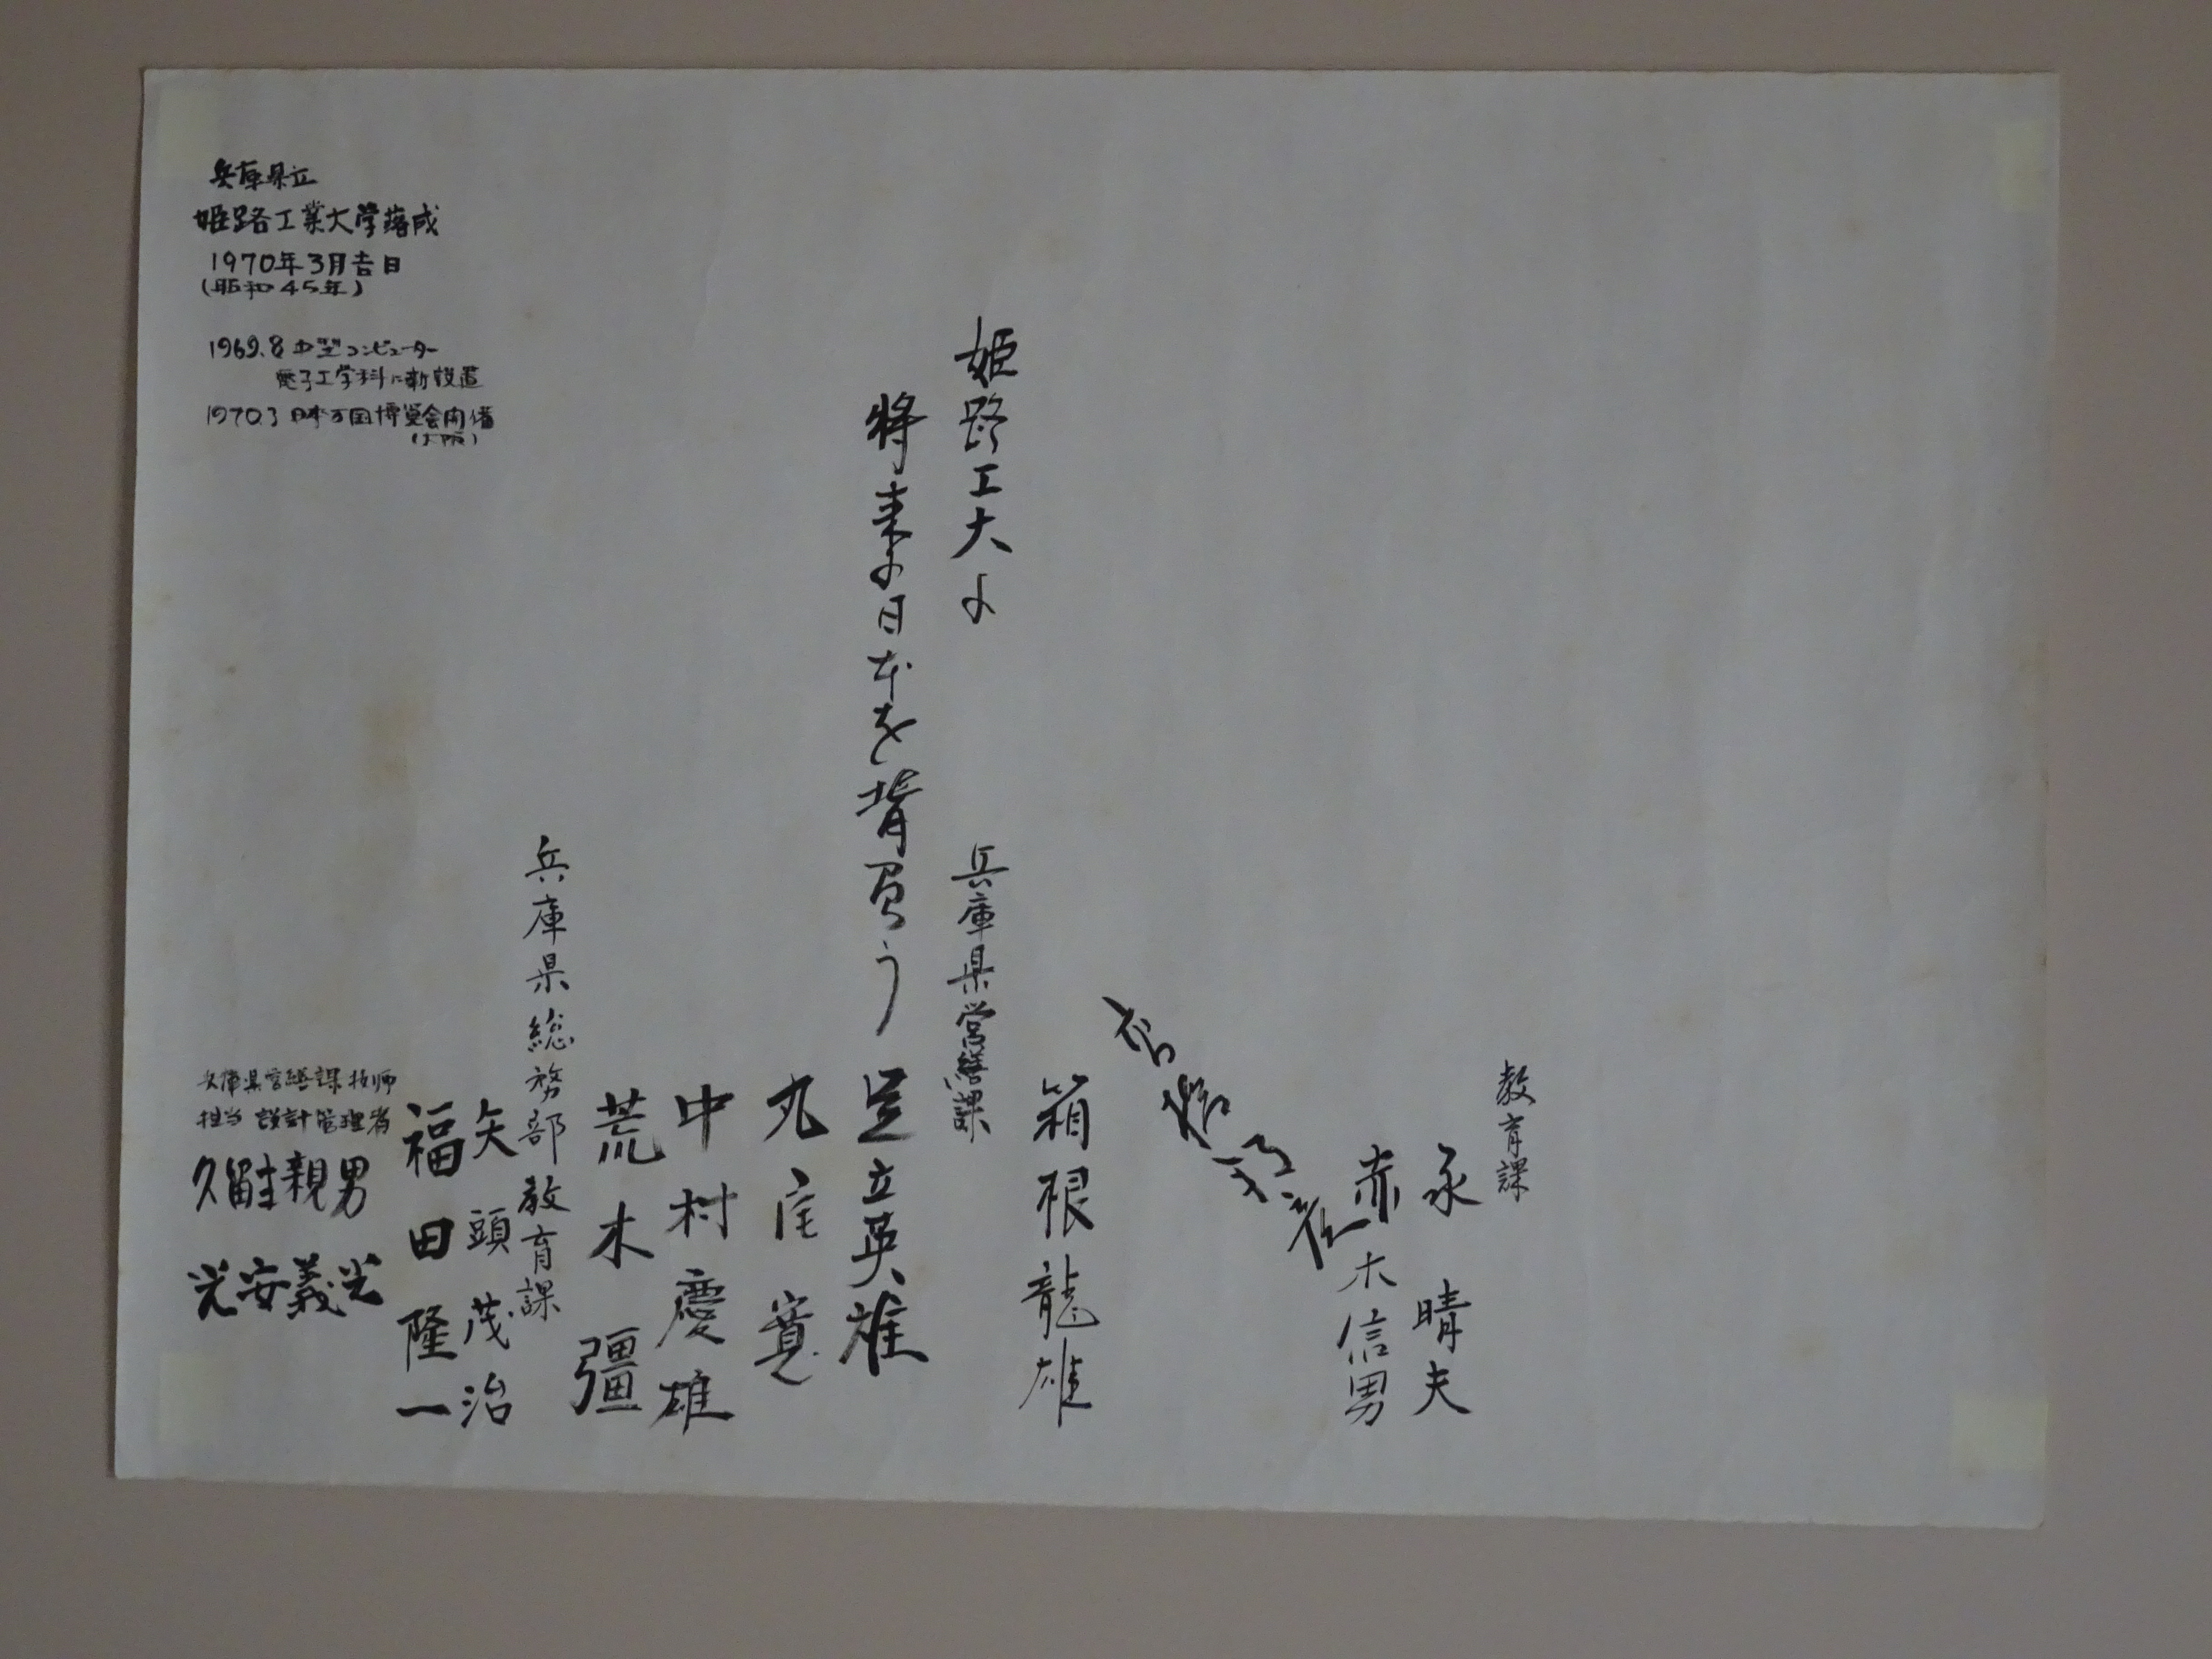 兵庫県立
姫路工業大学落成
1970年3月吉日
(昭和45年)
1969.8 中型コンピューター
電子工学科に新設置
1970.3 日本万国博覧会開催
(大阪)
教育課
永 晴夫
赤木信男
箱根龍雄
姫路工大よ
兵庫県営繕課
将来よ日本を背負う
足立英雄
丸尾寛
中村慶雄
荒木彊
兵庫県総務部教育課
矢頭茂治
福田隆一
兵庫県営繕課技師
担当 設計管理者
久留主親男
光安義光